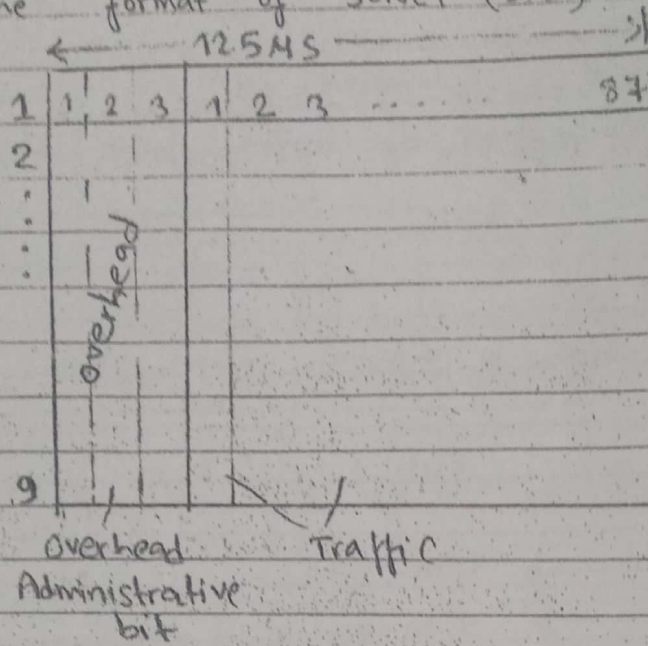 format of
125 MS
1 1 2 3 1 2 3 ...... 87
2
overhead
9
overhead Traffic
Administrative
bit